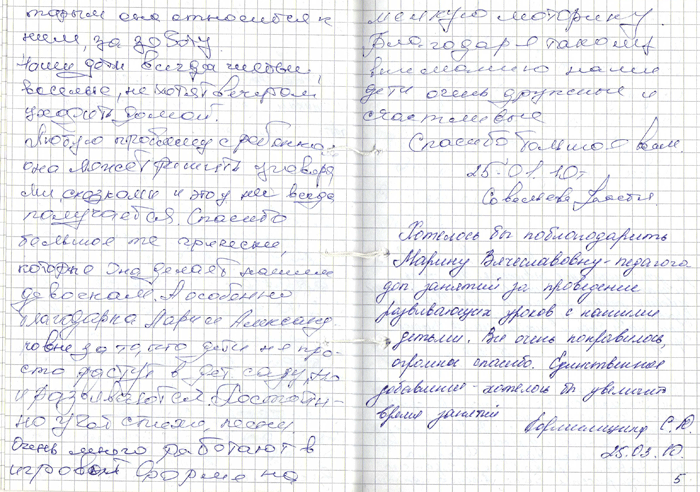 торым она относится к
ним, за заботу.
Наши дети всегда
веселые, не хотят вечером
уходить домой.
Любую проблему с ребенком
она может решить уговора
ми, сказками и это у нее всегда
получается. Спасибо
большое те прически,
которые она делает нашим
девочкам. А особенно
благодарна Ларисе Александ
ровне за то, что дети не про-
сто растут в дет саду, но
и развиваются. Постоян-
но учат стихи, песни
Очень много работают в
игровой форме на
мелкую моторику.
Благодаря такому
вниманию наши
дети очень дружные и
счастливые
Спасибо большое вам.
25.01.10г
Хотелось бы поблагодарить
Марину Вячеславовну - педагога
доп занятий за проведение
развивающих уроков с нашими
детьми. Все очень понравилось,
огромное спасибо. Единственное
добавление - хотелось бы увеличить
время занятий
С. Ю.
25.03.10.
5